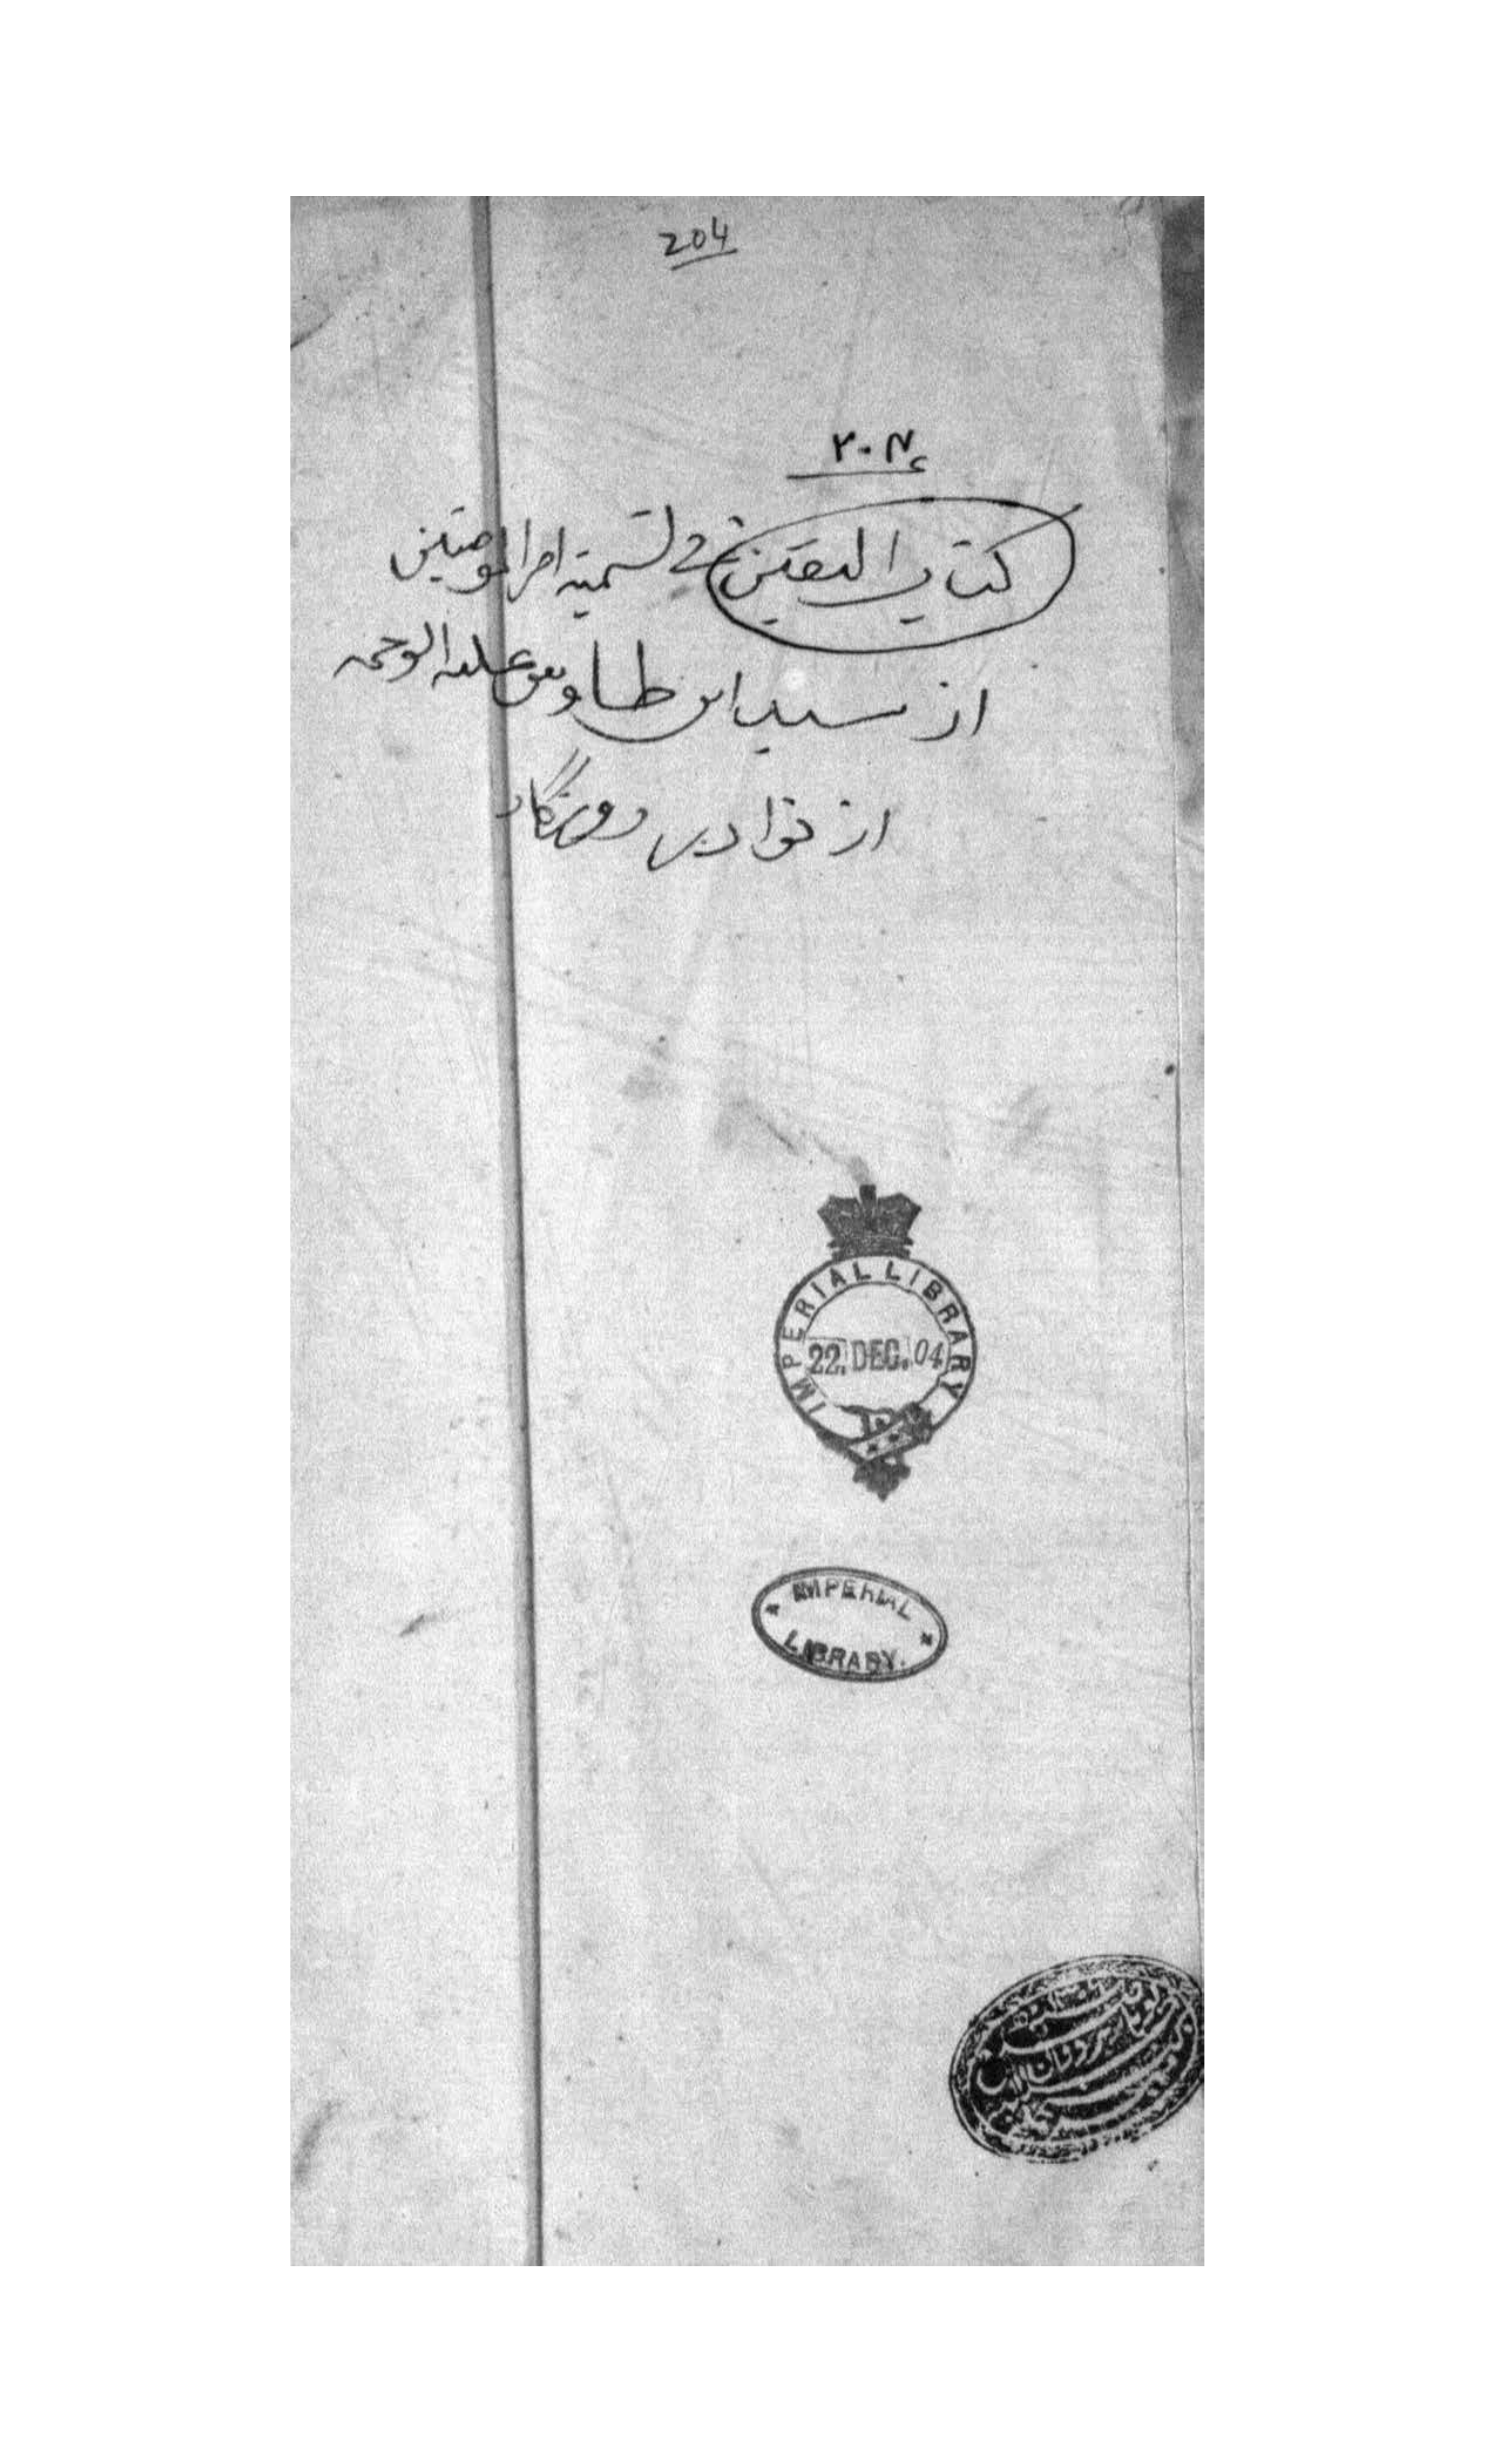 204
٢٠٤
كتاب اليقين فے تسمية امير المومنين
از سيد ابن طاوس عليه الرحمه
از نوادر روزگار
IMPERIAL LIBRARY
22. DEC. 04
IMPERIAL
LIBRARY.